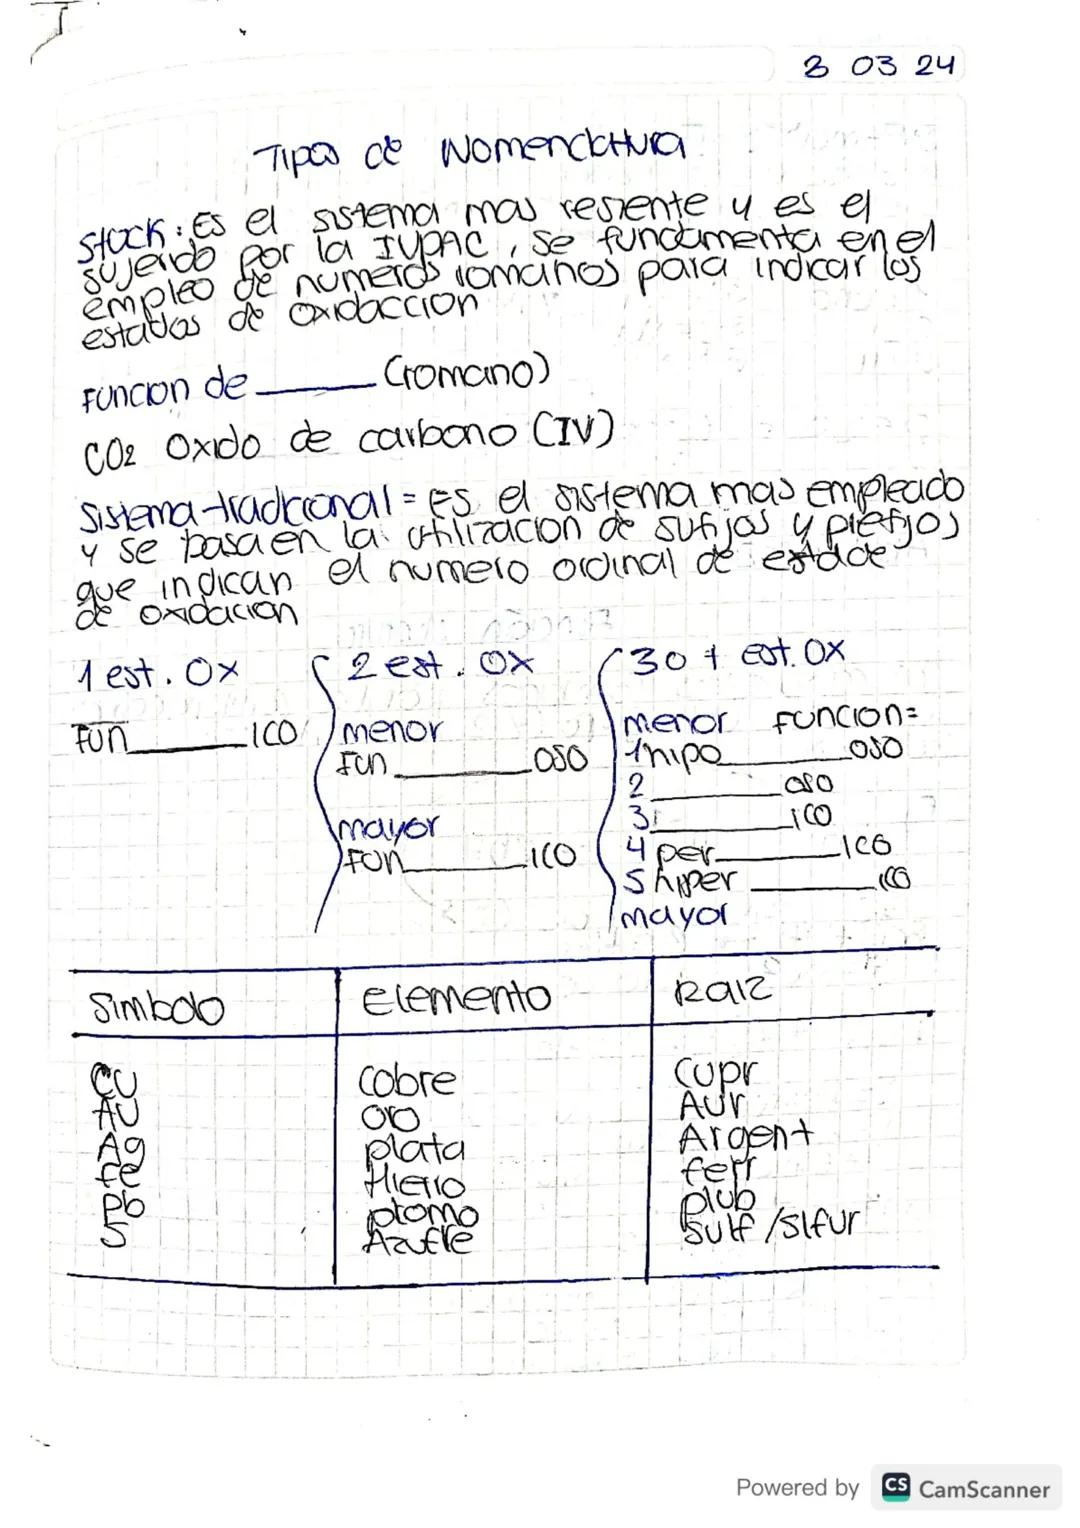 3 03 24
Tipos de Nomenclatura
Stock: Es el sistema mas resiente y es el
sujerido por la IUPAC, se fundamenta en el
empleo de numeros romanos para indicar los
estados de oxidaccion
Funcion de ______ (romano)
CO2 Oxido de carbono (IV)
Sistema tradicional = Es el sistema mas empleado
y se basa en la utilizacion de sufijos y prefijos
que indican el numero ordinal de estade
de oxidacion
1 est. Ox
2 est. Ox
3 o + est. Ox
Fun______ico
menor
Fun______oso
mayor
Fun______ico
menor funcion=
1 hipo______oso
2______oso
3______ico
4 per______ico
5 hiper______ico
mayor
Simbolo Elemento Raiz
Cu cobre Cupr
Au oro Aur
Ag plata Argent
fe Hierro ferr
Pb plomo plub
S Azufre sulf /slfur
Powered by CS CamScanner